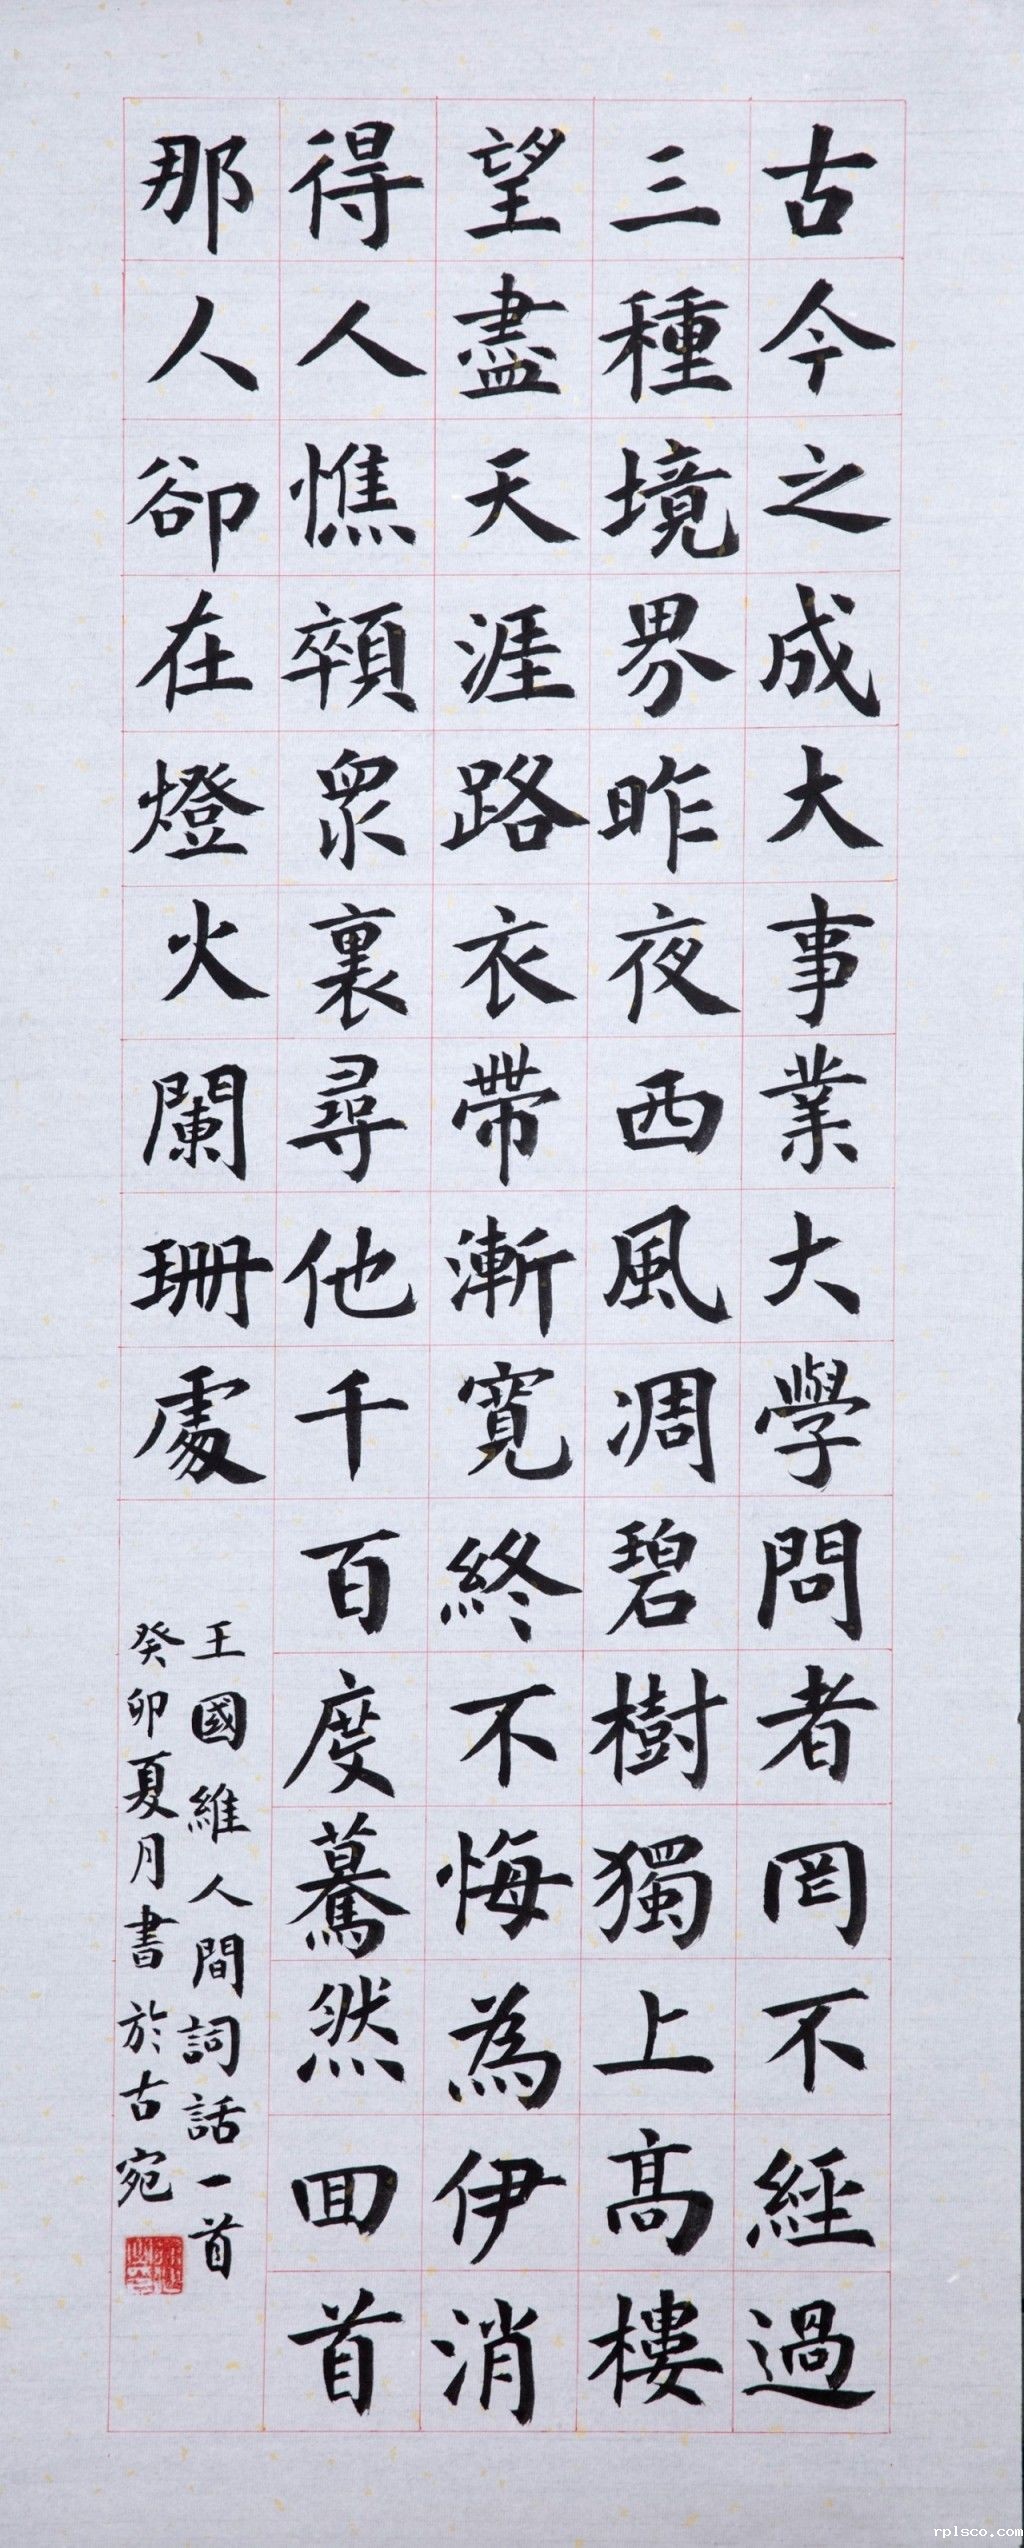 古今之成大事業大學問者罔不經過
三種境界昨夜西風凋碧樹獨上高樓
望盡天涯路衣帶漸寬終不悔為伊消
得人憔顇衆裏尋他千百度驀然回首
那人卻在燈火闌珊處
王國維人間詞話一首
癸卯夏月書於古宛
rplsco.com